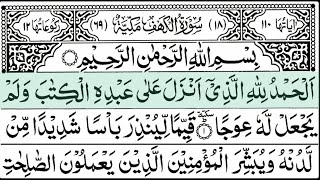 اٰیَاتُهَا ۱۱۰ (۱۸) سُوْرَةُ الْكَهْفِ مَكِّیَّةٌ (۶۹) رُكُوْعَاتُهَا ۱۲
بِسْمِ اللّٰهِ الرَّحْمٰنِ الرَّحِیْمِ
اَلْحَمْدُ لِلّٰهِ الَّذِیْۤ اَنْزَلَ عَلٰى عَبْدِهِ الْكِتٰبَ وَلَمْ
یَجْعَلْ لَّهٗ عِوَجًا ۱ قَیِّمًا لِّیُنْذِرَ بَاْسًا شَدِیْدًا مِّنْ
لَّدُنْهُ وَیُبَشِّرَ الْمُؤْمِنِیْنَ الَّذِیْنَ یَعْمَلُوْنَ الصّٰلِحٰتِ